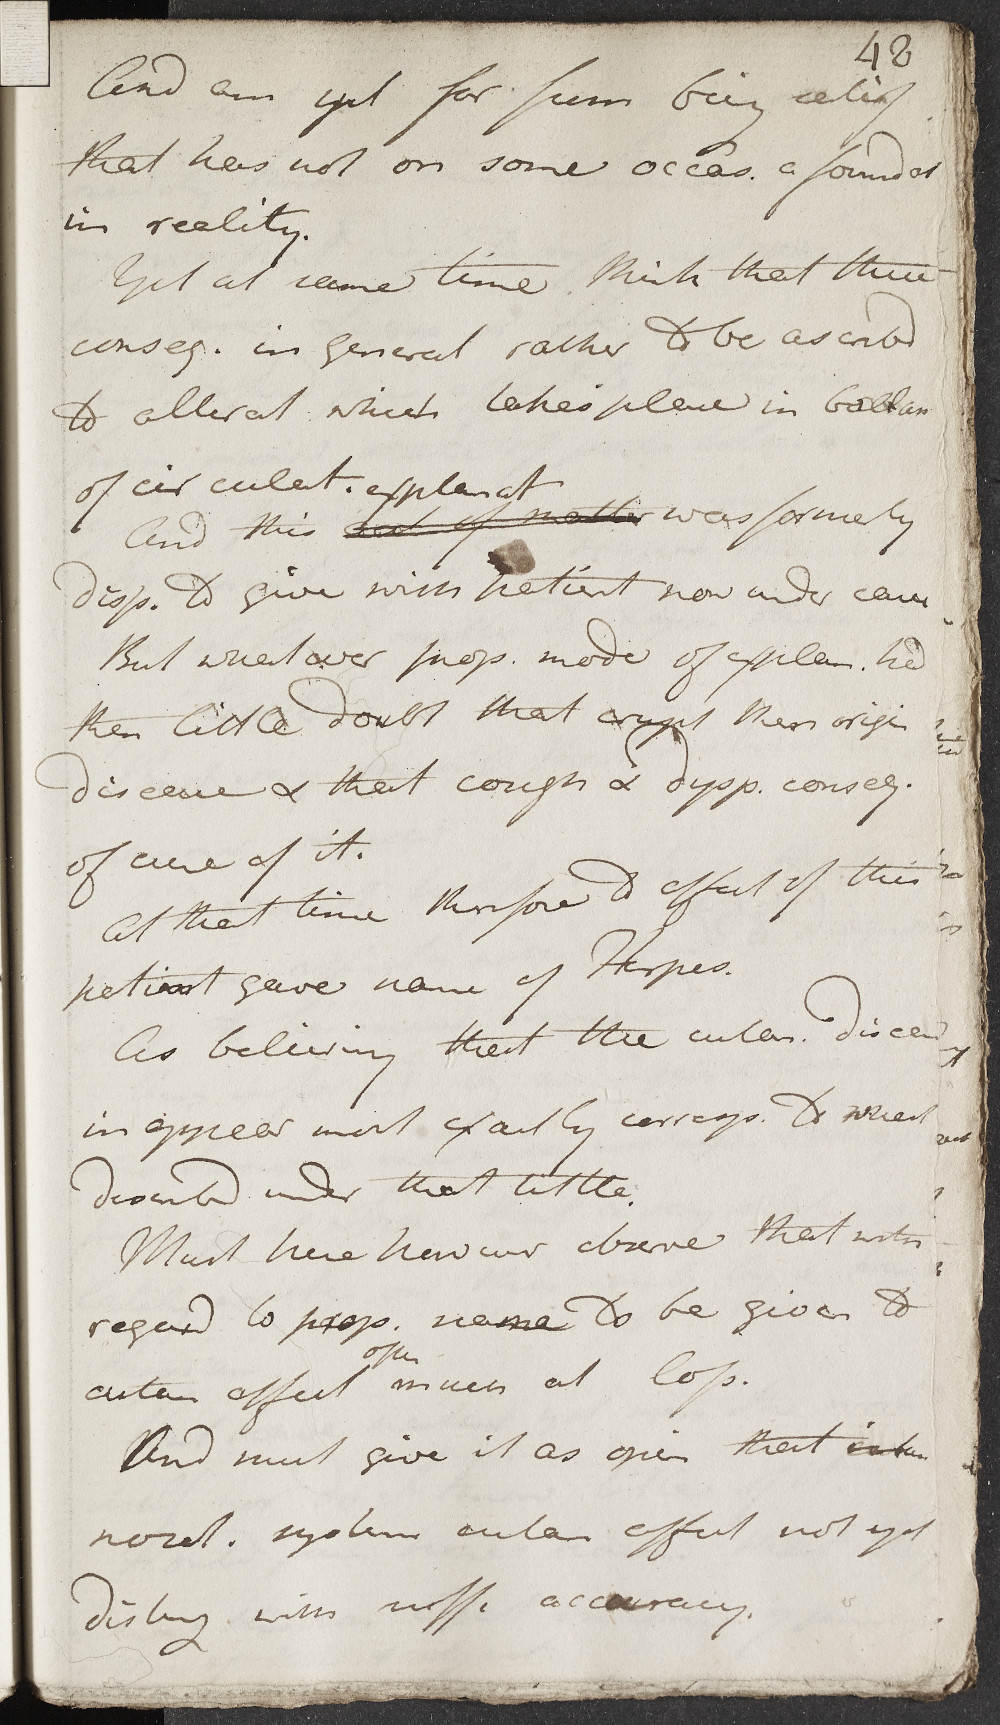 48
And am yet far from being satisf
that has not on some occas. a foundat
in reality.
Yet at same time think that these
conseq. in general rather to be ascribd
to alterat which takes place in ballan
of circulat. explanat
And this sort of matter was formerly
disp. to give with patient now under care
But whatever prop. mode of explan. had
then little doubt that erupt then origin
disease & that cough & dysp. conseq.
of cure of it.
At that time therefore to affect of this
patient gave name of Herpes.
As believing that the cutan. disease
in appear most exactly corresp. to what
described under that tittle.
Must here however observe that with
regard to prop. name to be given to
cutan affect often much at loss.
And must give it as opin that in
nosol. system cutan affect not yet
disting with suff. accuracy.